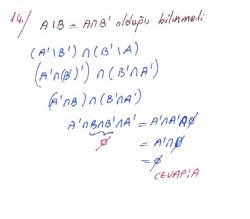 14/ A\B = A∩B' olduğu bilinmeli
(A'\B') ∩ (B'\A)
(A'∩(B')') ∩ (B'∩A')
(A'∩B) ∩ (B'∩A')
A'∩B∩B'∩A' = A'∩A'∩∅
∅ = A'∩∅
= ∅
CEVAP: A